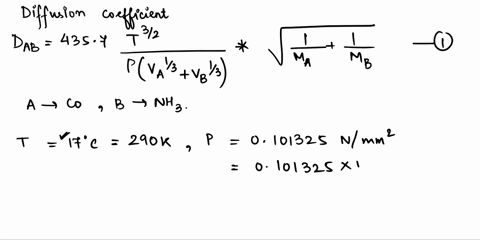 Diffusion coefficient
D_AB = 435.7 T^3/2 / P(V_A^1/3 + V_B^1/3) * √(1/M_A + 1/M_B) — ①
A → CO , B → NH3.
T = 17°C = 290K , P = 0.101325 N/mm²
= 0.101325 ×1